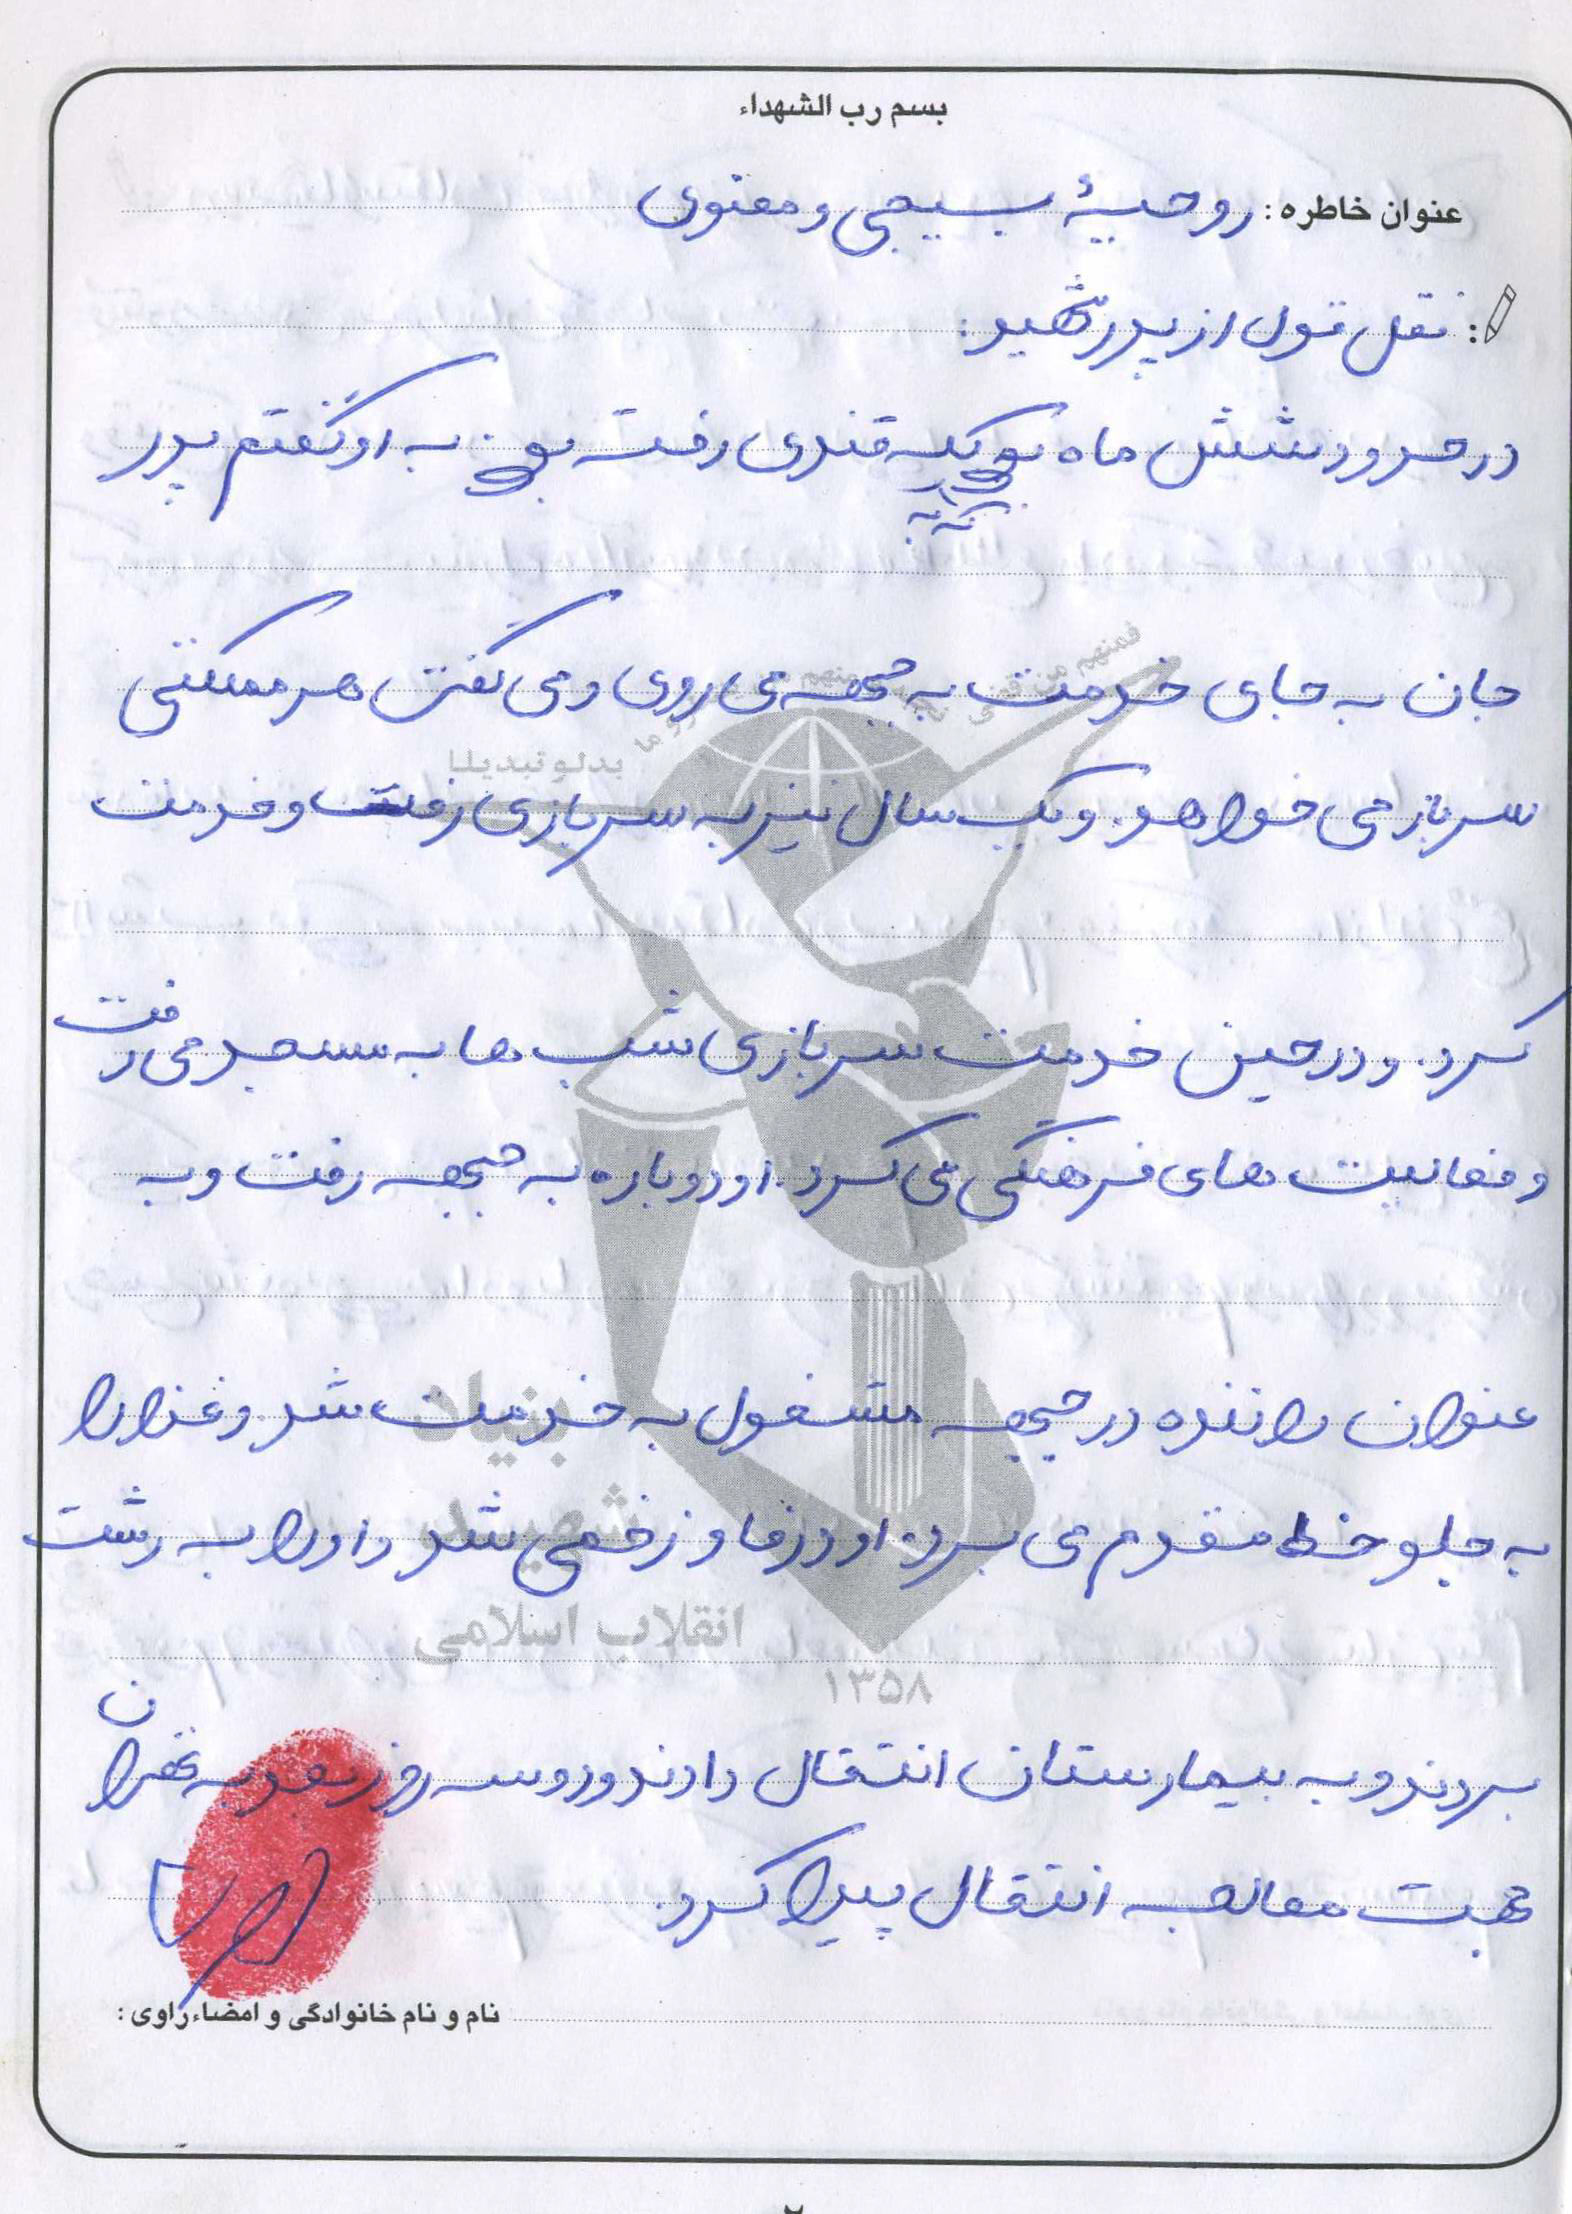 بسم رب الشهداء
عنوان خاطره : روحیهٔ بسیجی و معنوی
: نقل قول از پدر شهید:
در حدود شش ماه بود که به قندی رفته بود. به او گفتم پدر
جان به جای خدمت به جبهه می روی و می گفت هر مملکتی
سرباز می خواهد. و یک سال نیز به سربازی رفت و خدمت
کرد. و در حین خدمت سربازی شب ها به مسجد می رفت
و فعالیت های فرهنگی می کرد. او دوباره به جبهه رفت و به
عنوان راننده در جبهه مشغول به خدمت شد. و غذا را
به جلو خط مقدم می برد. او در فاو زخمی شد و او را به رشت
بردند و به بیمارستان انتقال دادند و دو سه روز بعد به تهران
جهت معالجه انتقال پیدا کرد.
نام و نام خانوادگی و امضاء راوی :
فمنهم من قضی نحبه و منهم من ینتظر و ما بدلو تبدیلا
بنیاد
شهید
انقلاب اسلامی
۱۳۵۸
۲